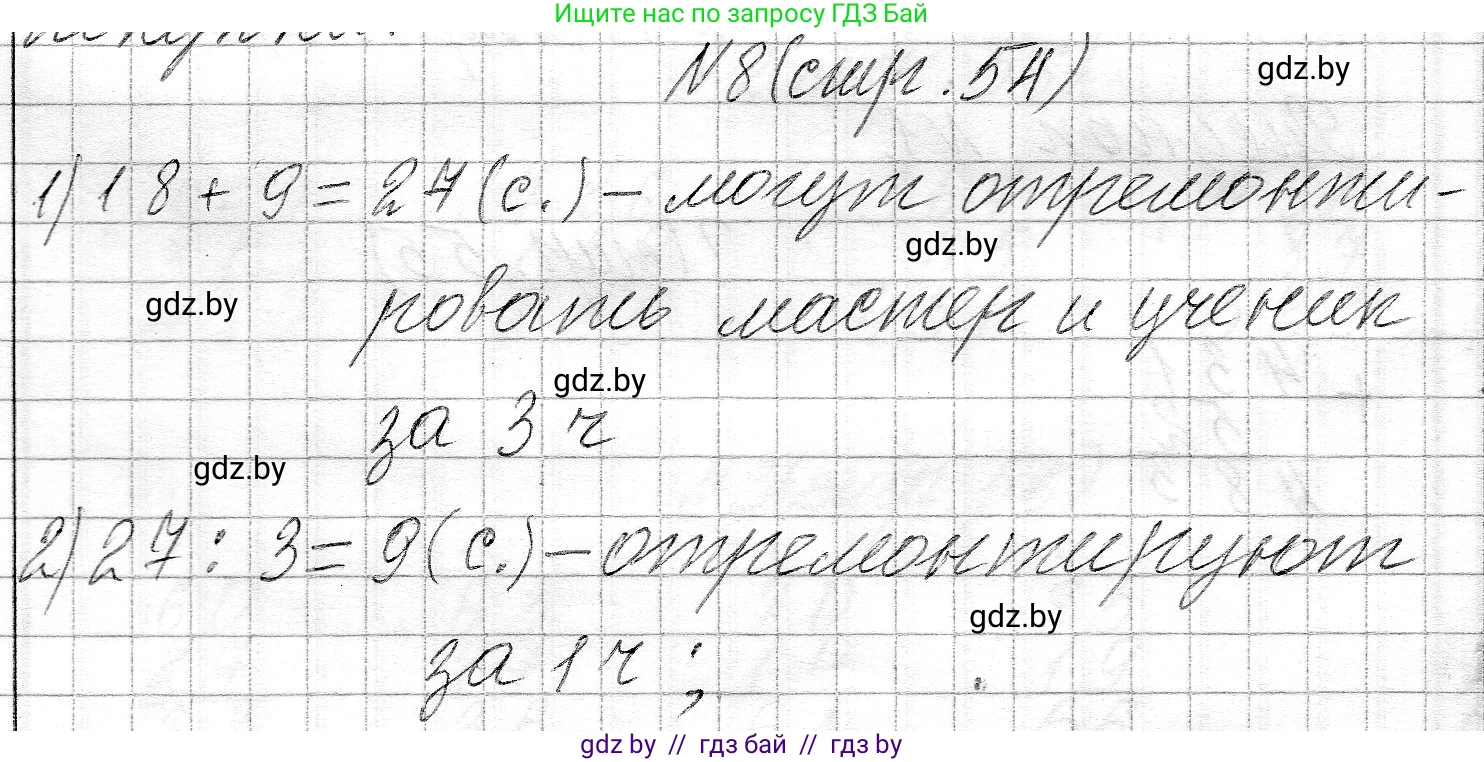 Ищите нас по запросу ГДЗ Бай
№8 (стр. 54)
gdz.by
1) 18 + 9 = 27 (с.) – могут отремонти-
gdz.by
gdz.by
ровать мастер и ученик
gdz.by
за 3 ч
gdz.by
2) 27 : 3 = 9 (с.) – отремонтируют
gdz.by
за 1 ч ;
gdz by // гдз бай // гдз by